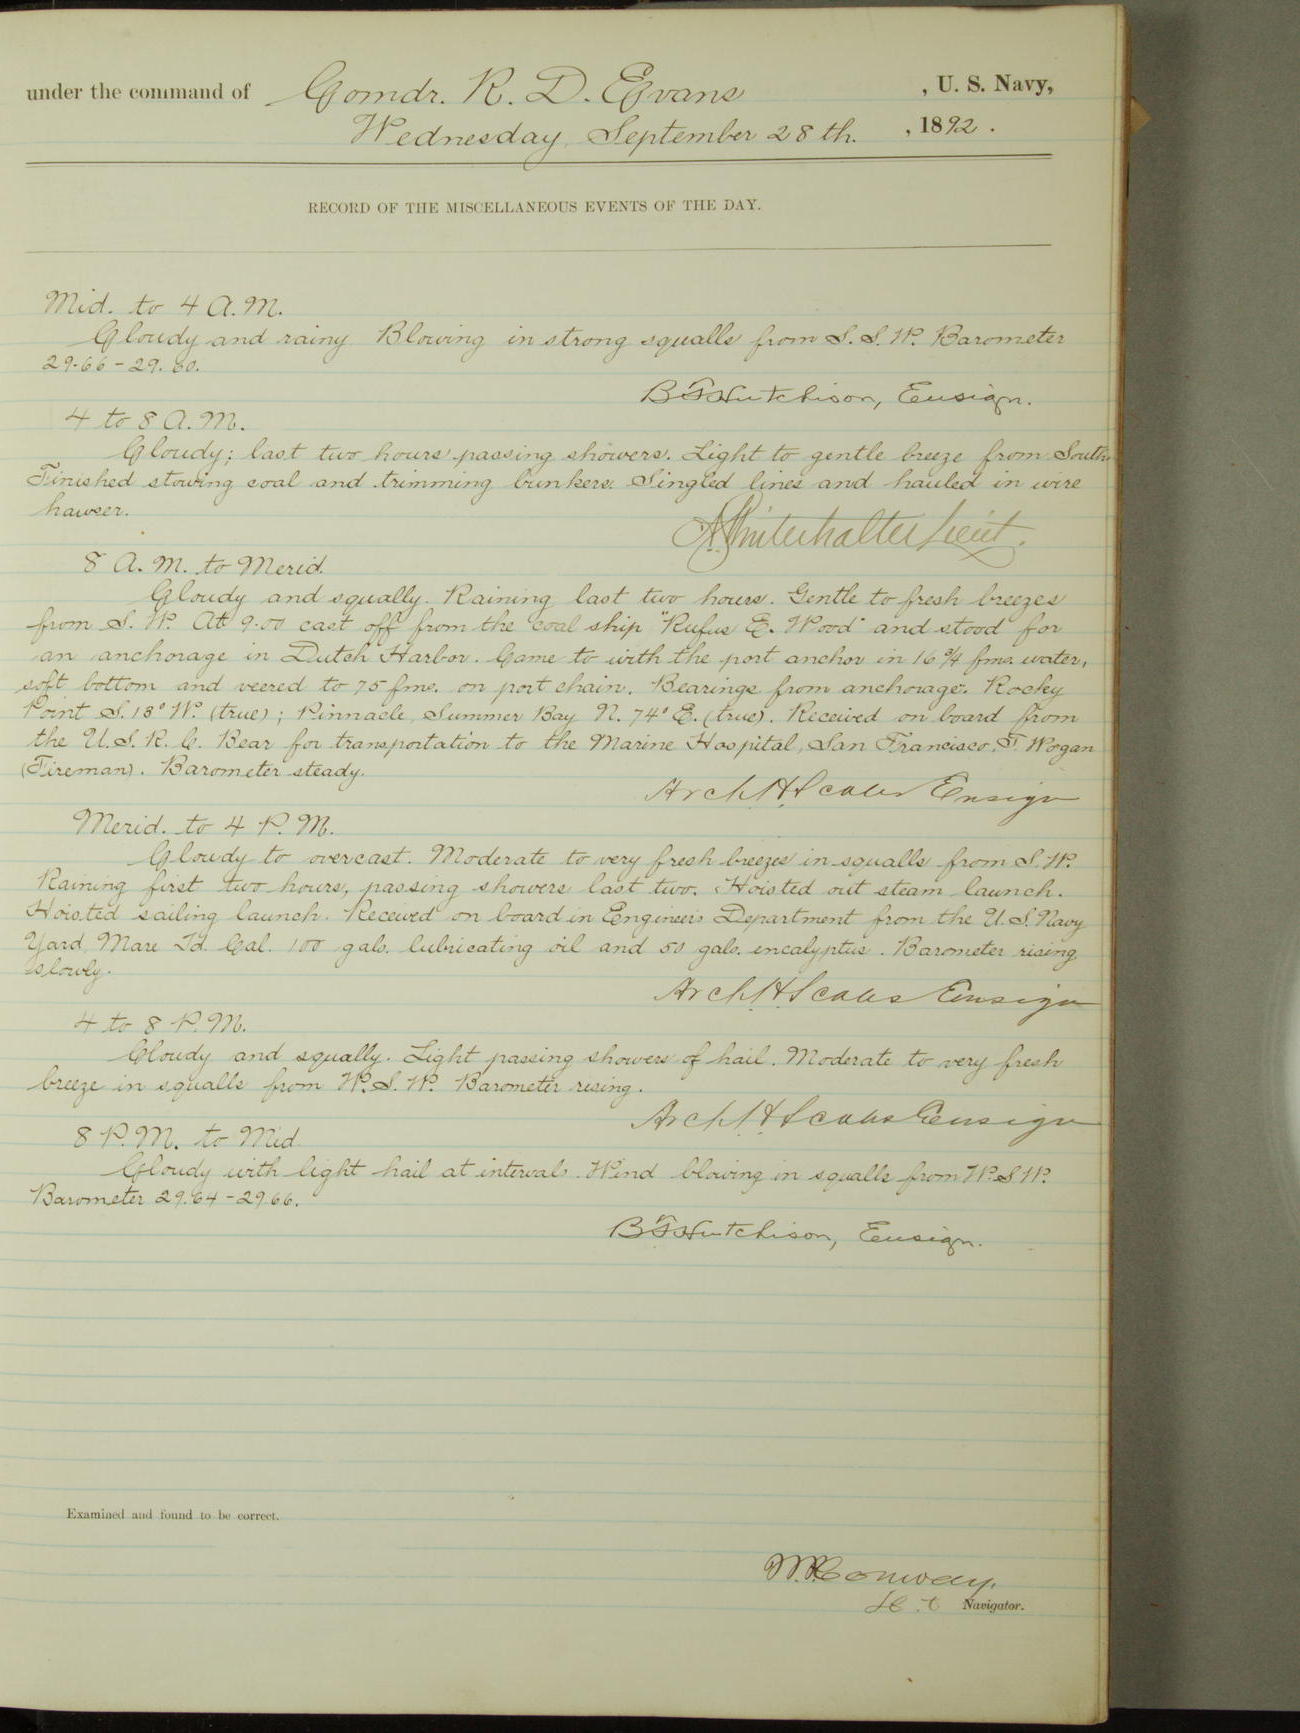 under the command of Comdr. R. D. Evans, U. S. Navy,
Wednesday, September 28th., 1892.
RECORD OF THE MISCELLANEOUS EVENTS OF THE DAY.
Mid. to 4 A.M.
Cloudy and rainy Blowing in strong squalls from S. S. W. Barometer
29.66 - 29.60.
B F Hutchison, Ensign.
4 to 8 A.M.
Cloudy; last two hours passing showers. Light to gentle breeze from South.
Finished stowing coal and trimming bunkers. Singled lines and hauled in wire
hawser.
A G Winterhalter Lieut.
8 A.M. to Merid.
Cloudy and squally. Raining last two hours. Gentle to fresh breezes
from S. W. At 9.00 cast off from the coal ship "Rufus E. Wood" and stood for
an anchorage in Dutch Harbor. Came to with the port anchor in 16 3/4 fms. water,
soft bottom and veered to 75 fms. on port chain. Bearings from anchorage:- Rocky
Point S. 13° W. (true); Pinnacle, Summer Bay N. 74° E. (true). Received on board from
the U. S. R. C. Bear for transportation to the Marine Hospital, San Francisco, T. Wogan
(Fireman). Barometer steady.
Arch H Scales Ensign
Merid. to 4 P.M.
Cloudy to overcast. Moderate to very fresh breezes in squalls from S. W.
Raining first two hours, passing showers last two. Hoisted out steam launch.
Hoisted sailing launch. Received on board in Engineers Department from the U. S. Navy
Yard, Mare Id. Cal. 100 gals. lubricating oil and 50 gals. encalyptus. Barometer rising
slowly.
Arch H Scales Ensign
4 to 8 P.M.
Cloudy and squally. Light passing showers of hail. Moderate to very fresh
breeze in squalls from W. S. W. Barometer rising.
Arch H Scales Ensign
8 P.M. to Mid.
Cloudy with light hail at intervals. Wind blowing in squalls from W. S. W.
Barometer 29.64 - 29.66.
B F Hutchison, Ensign.
Examined and found to be correct.
W. P. Conway,
Lt Navigator.